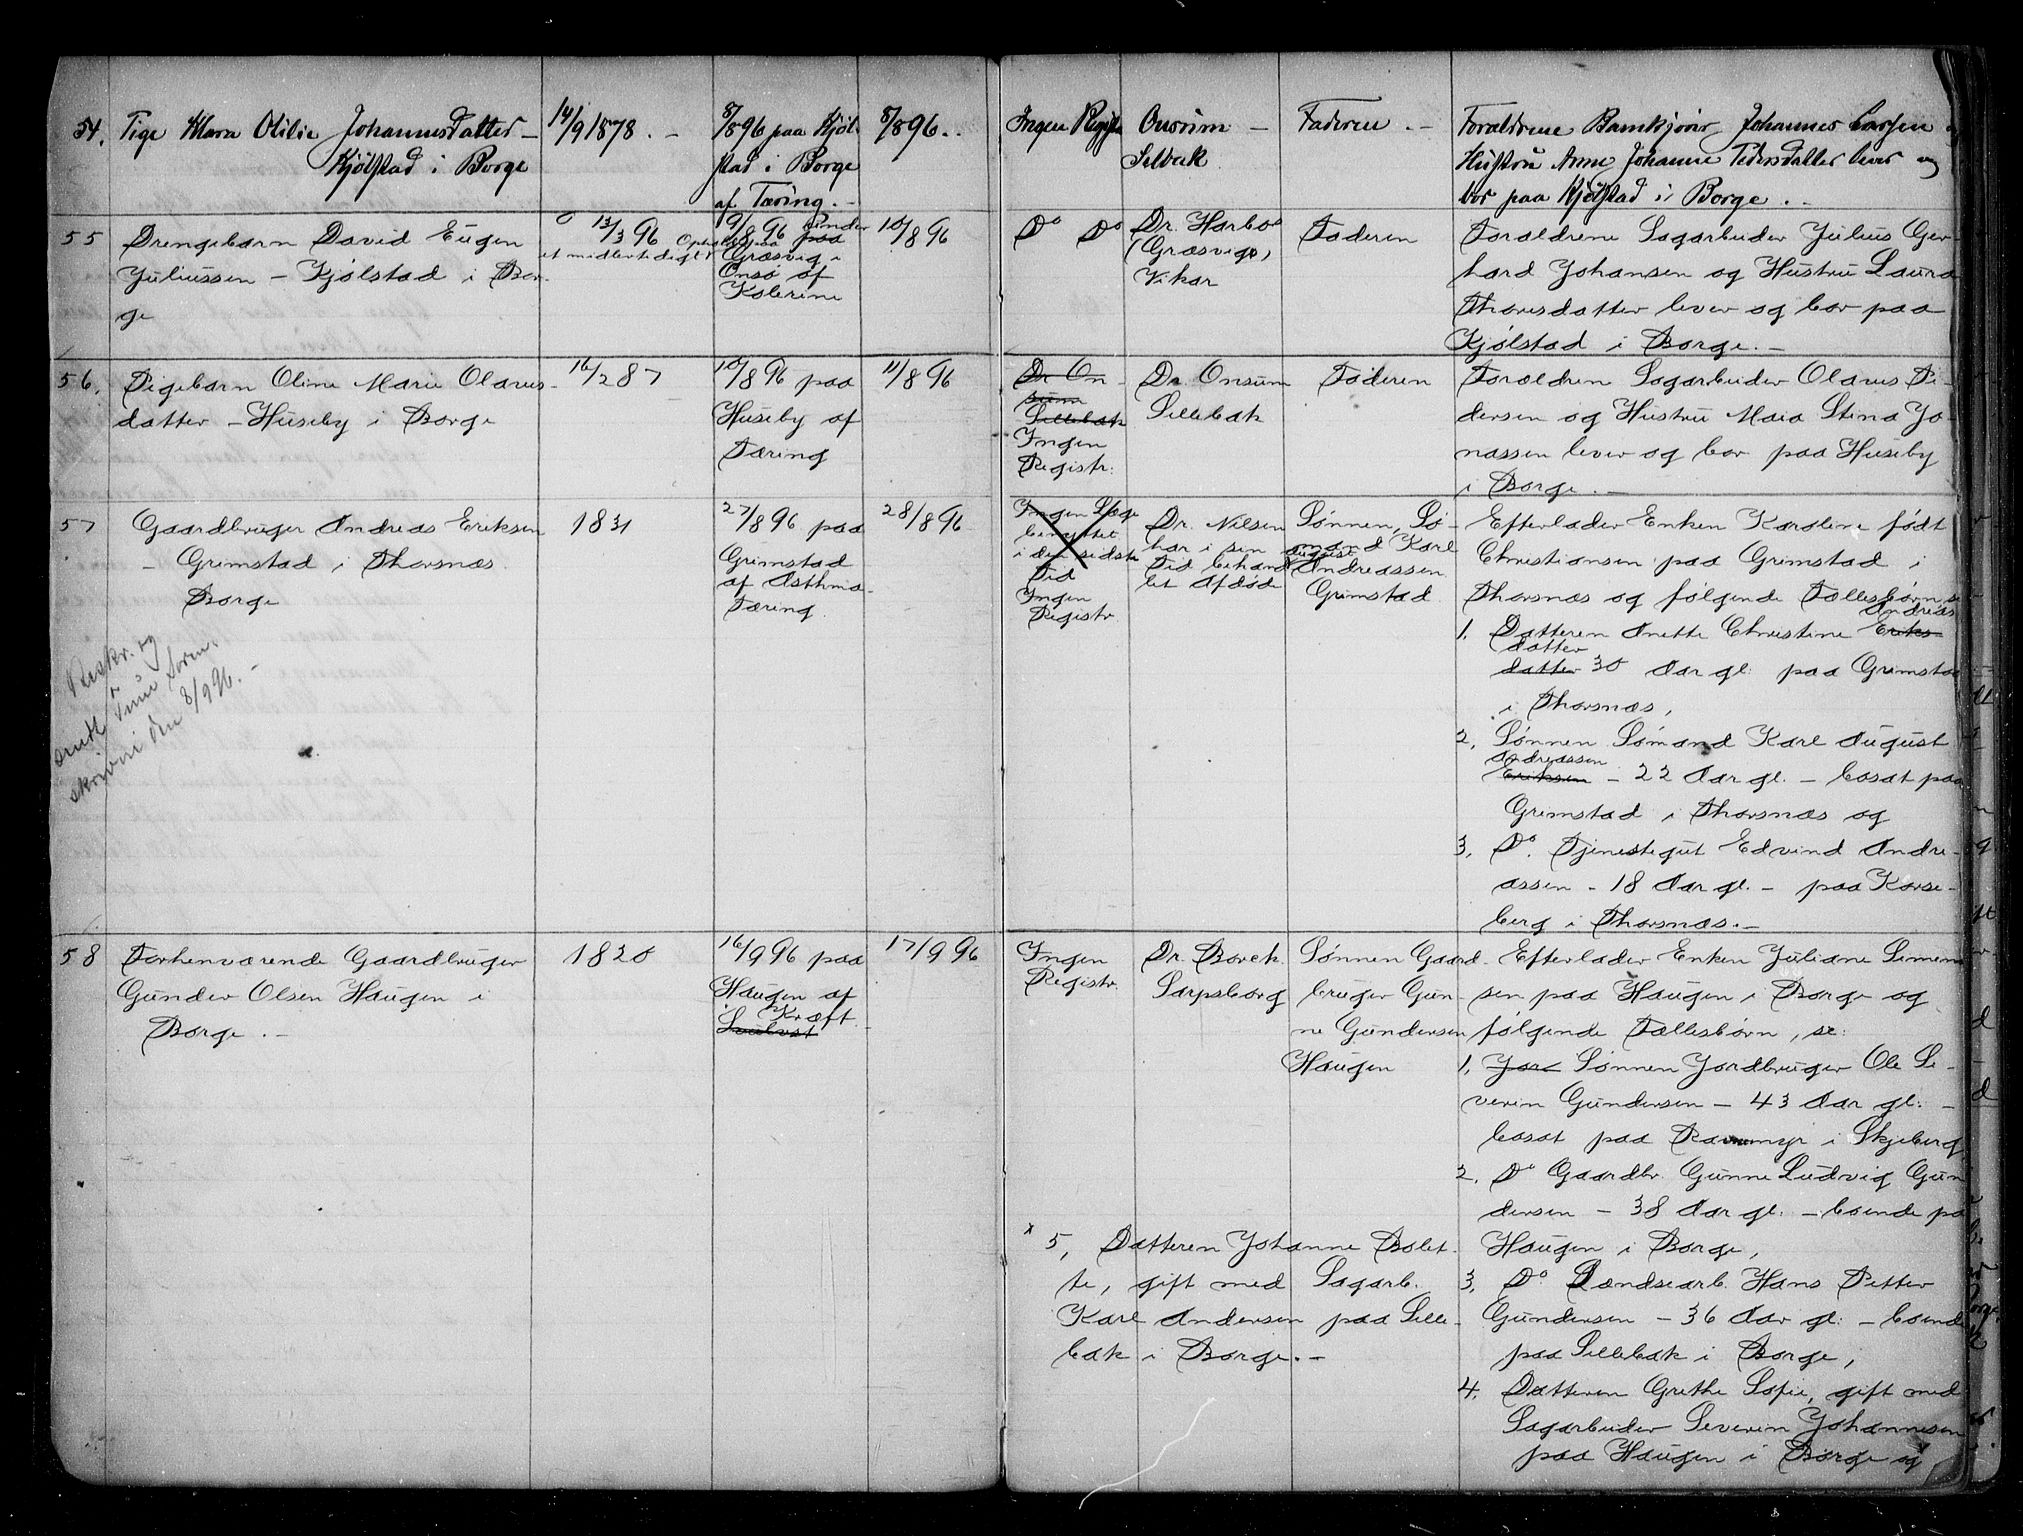 54. Pige Klara Otilie Johannesdatter –
Kjölstad i Borge
14/9 1878. –
8/8 96 paa Kjöl-
stad i Borge
af Tæring. –
8/8 96. .
Ingen Registr
Onsum –
Sellebak
Faderen. –
Forældrene Johannes Larsen og
Hustru Anne Johanne Pedersdatter lever og
bor paa Kjølstad i Borge. –
55 Drengebarn David Eugen
Juliussen – Kjølstad i Bor-
ge
13/3 96
9/8 96 under
Ophold paa
et midlertidigt
Græsvig i
Onsø af
Kolerine
10/8 96
Do Do
Dr. Harboe
(Græsvigs)
Vikar
Faderen
Forældrene Sagarbeider Julius Ger-
hard Johansen og Hustru Laura
Thorsdatter lever og bor paa
Kjølstad i Borge. –
56. Pigebarn Oline Marie Olaves-
datter – Huseby i Borge
16/2 87
10/8 96 paa
Huseby af
Tæring
11/8 96
Dr On-
sum
Sellebak
Ingen
Registr.
Dr. Onsum
Sellebak
Faderen
Forældren Sagarbeider Olaves Pe-
dersen og Hustru Maia Stina Jo-
nassen lever og bor paa Huseby
i Borge. –
57 Gaardbruger Andreas Eriksen
– Grimstad i Thorsnæs
Borge
1831
27/8 96 paa
Grimstad
af Asthma-
Tæring
28/8 96
Ingen Læge
benyttet
i den sidste
Tid
Ingen
Registr
Dr. Nilsen
har i sin
Tid behand-
let Afdøde
Sønnen, Sø-
mand Karl
August
Andreassen
Grimstad
Efterlader Enken Karoline født
Christiansen paa Grimstad i
Thorsnæs og følgende Fællesbørn se
1. Datteren Anette Christine Eriks Andreas
datter
datter 30 Aar gl. paa Grimstad
i Thorsnæs,
2. Sønnen Sømand Karl August
Andreassen
Eriksen – 22 Aar gl. – bosat paa
Grimstad i Thorsnæs og
3. Do. Tjenestegut Edvind Andre-
assen – 18 Aar gl. – paa Korse-
berg i Thorsnæs. –
Reskr. og
sendt Tune Soren-
skriveri den 8/9 96. –
58 Forhenværende Gaardbruger
Gunder Olsen Haugen i
Borge. –
1820
16/9 96 paa
Haugen af
Kræft
i
17/9 96
Ingen
Registr.
Dr. Borch
Sarpsborg
Sønnen Gaard-
bruger Gun-
ne Gundersen
Haugen
Efterlader Enken Juliane Simen-
sen paa Haugen i Borge og
følgende Fællesbørn, se:
1. Jord Sønnen Jordbruger Ole Se-
verin Gundersen – 43 Aar gl. –
bosat paa Ravnmyr i Skjeberg,
2. Do Gaardbr. Gunne Ludvig Gun-
dersen – 38 Aar gl. – boende paa
Haugen i Borge,
3. Do. Lændsearb. Hans Petter
Gundersen – 36 Aar gl. – boende
paa Sellebak i Borge,
4. Datteren Grethe Sofie, gift med
Sagarbeider Severin Johannesen
paa Haugen i Borge og
x 5, Datteren Johanne Bolet-
te, gift med Sagarb.
Karl Andersen paa Selle-
bak i Borge. –